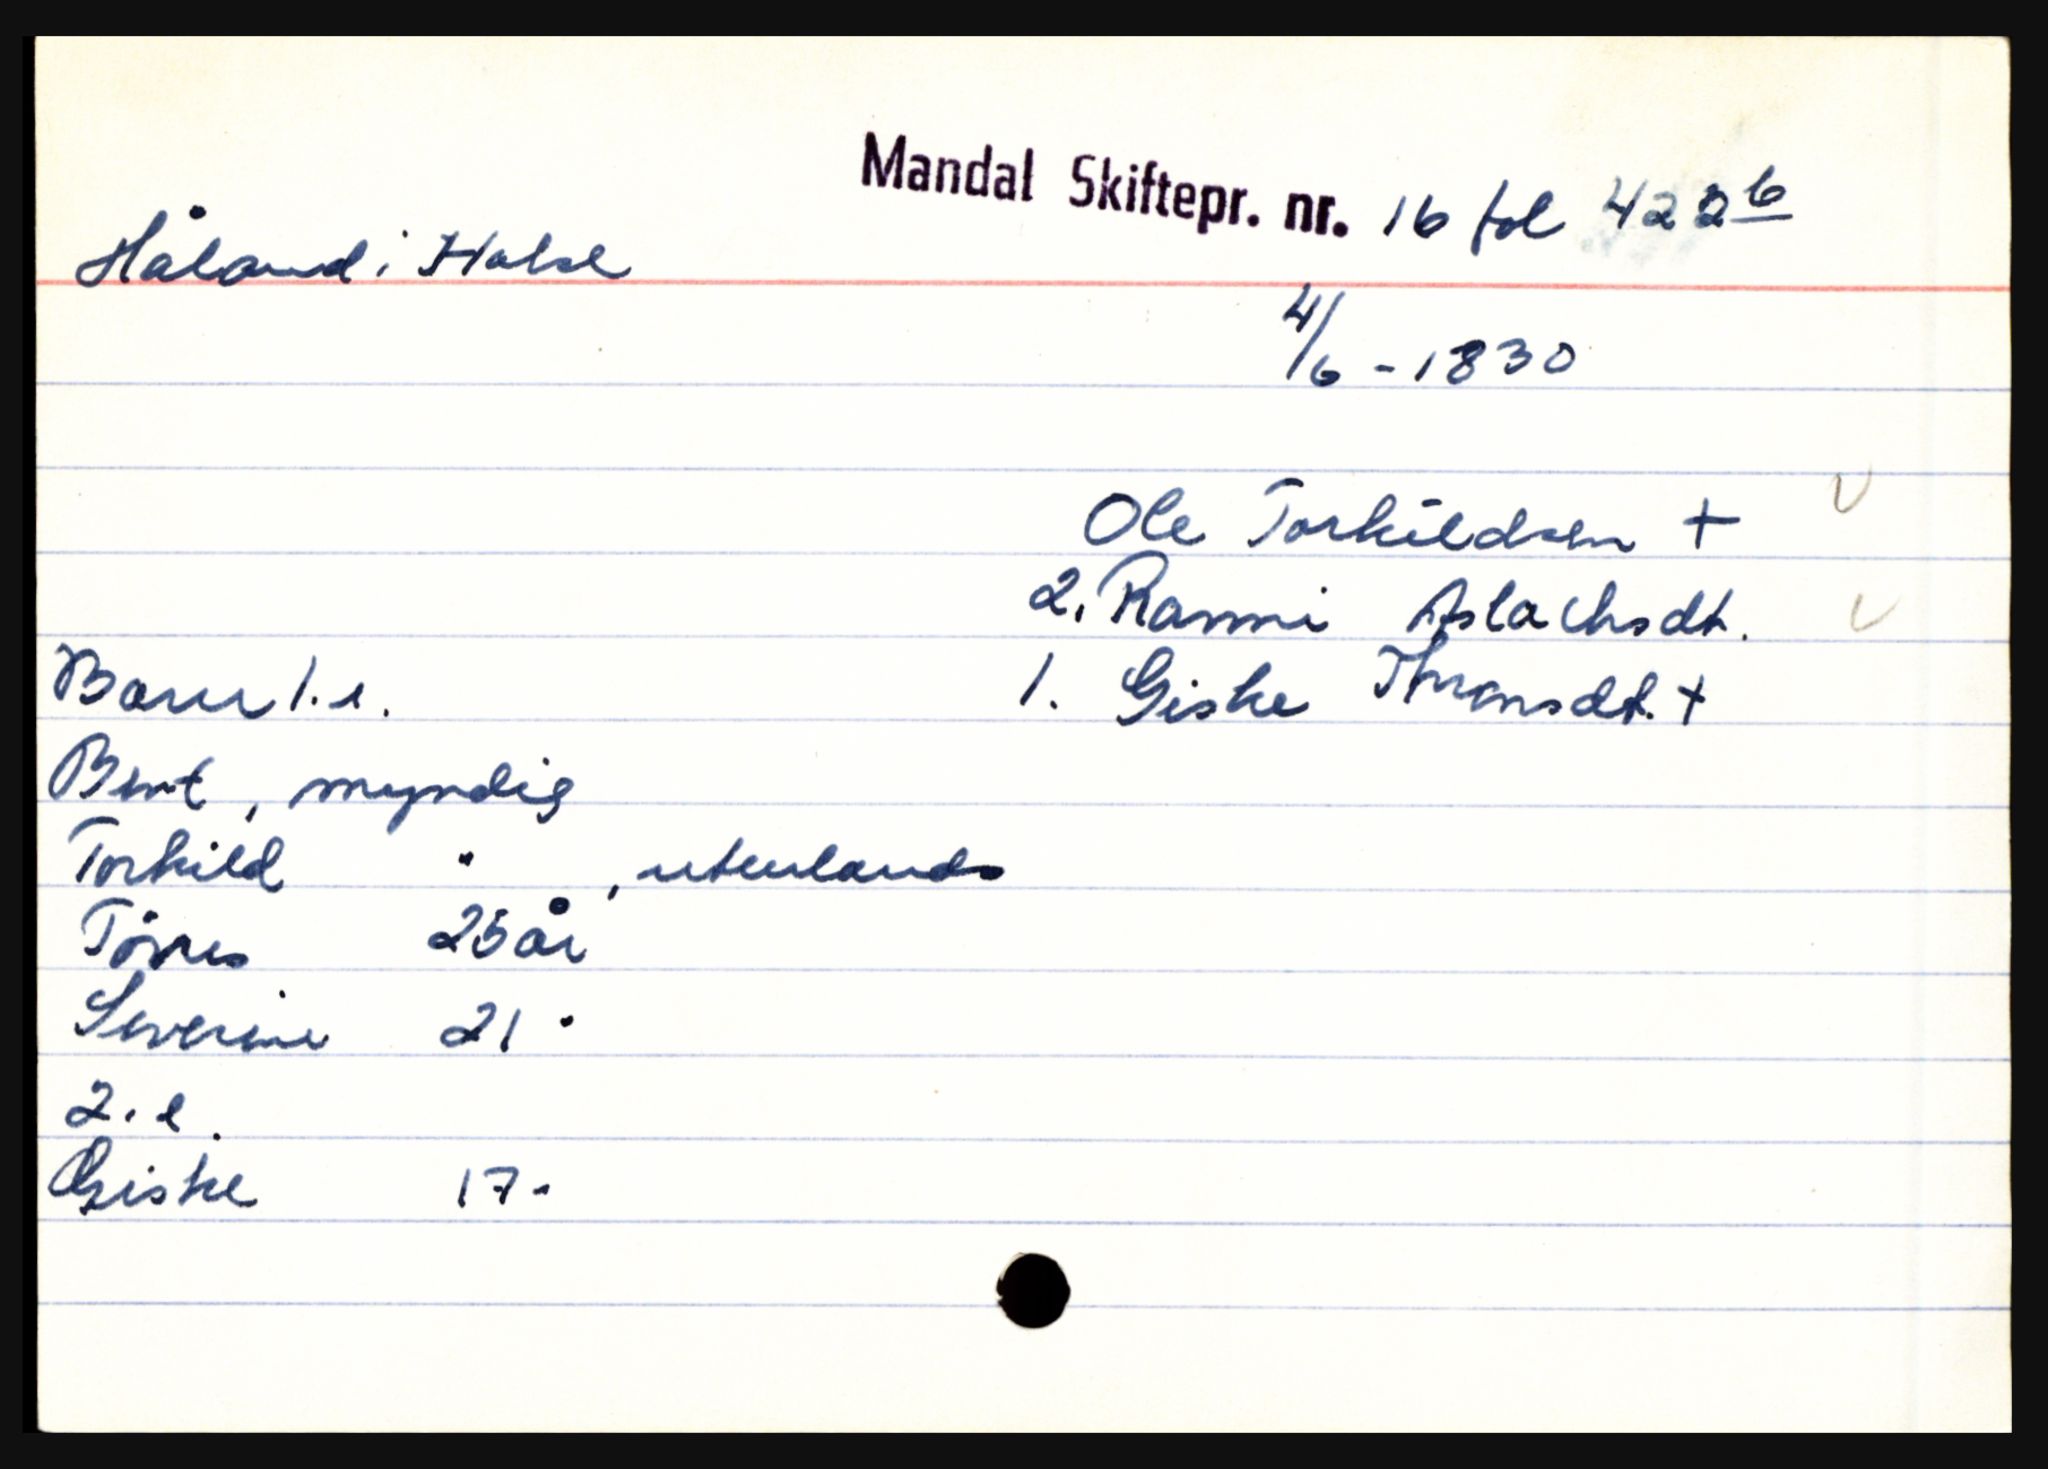 Mandal Skiftepr. nr. 16 fol 422b
Håland i Halse
4/6 - 1830
Ole Torkildsen +
2. Ranni Aslachsdt.
Barn 1. e. 1. Giske +
Bent, myndig
Torkild " , utenlands
Tørres 25 år
Severine 21 "
2. e.
Giske 17 -